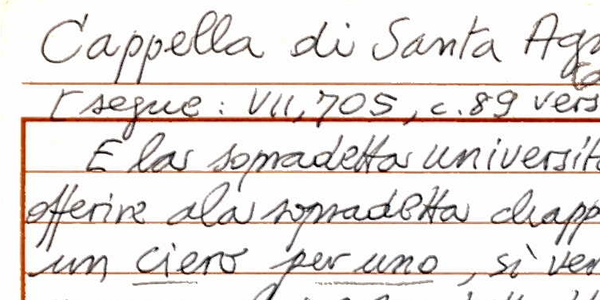 Cappella di Santa Ag
[segue: VII, 705, c. 89 vers
E la sopradetta universit
offerire ala sopradetta chapp
un ciero per uno, sì ven